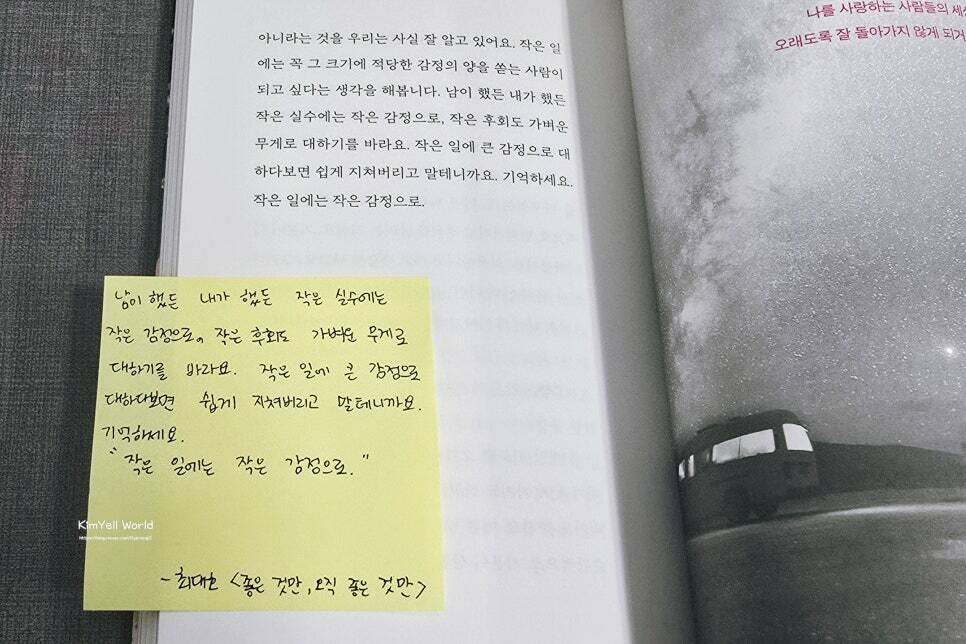 아니라는 것을 우리는 사실 잘 알고 있어요. 작은 일
에는 꼭 그 크기에 적당한 감정의 양을 쏟는 사람이
되고 싶다는 생각을 해봅니다. 남이 했든 내가 했든
작은 실수에는 작은 감정으로, 작은 후회도 가벼운
무게로 대하기를 바라요. 작은 일에 큰 감정으로 대
하다보면 쉽게 지쳐버리고 말테니까요. 기억하세요.
작은 일에는 작은 감정으로.
남이 했든 내가 했든 작은 실수에는
작은 감정으로, 작은 후회도 가벼운 무게로
대하기를 바라요. 작은 일에 큰 감정으로
대하다보면 쉽게 지쳐버리고 말테니까요.
기억하세요.
"작은 일에는 작은 감정으로."
-최대호 <좋은 것만, 오직 좋은 것만>
KimYell World
나를 사랑하는 사람들의
오래도록 잘 돌아가지 않게